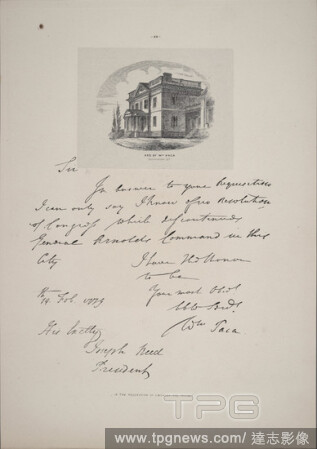 Sir
In answer to your Requisition
I can only say I know of no Resolution
of Congress which discontinues
General Arnolds Command in this
City
I have the Honour
to be
Your most Obdt
Hble Servt.
Wm Paca
14 Feb. 1779
His Excelly
Joseph Reed
President
TPG
www.tpgnews.com / 達志影像